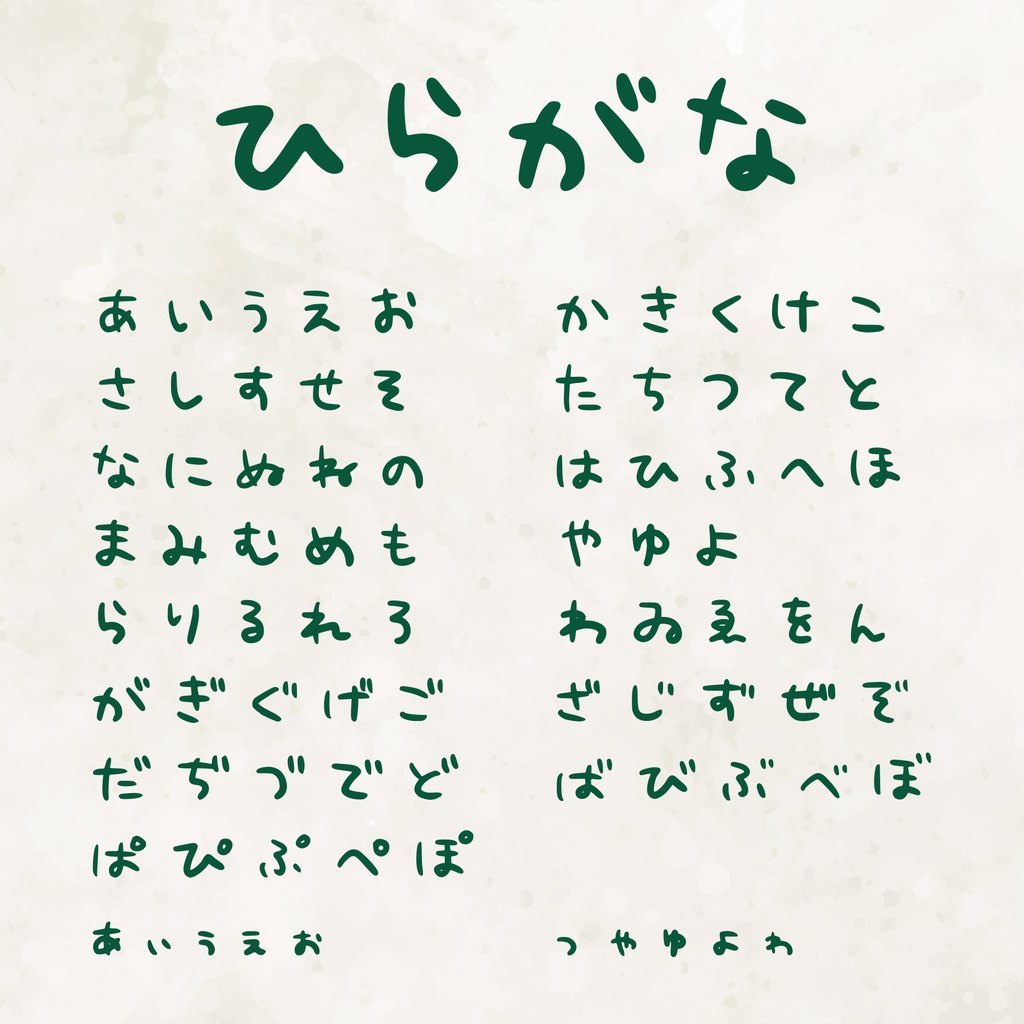 ひらがな
あいうえお かきくけこ
さしすせそ たちつてと
なにぬねの はひふへほ
まみむめも やゆよ
らりるれろ わゐゑをん
がぎぐげご ざじずぜぞ
だぢづでど ばびぶべぼ
ぱぴぷぺぽ
ぁぃぅぇぉ っゃゅょゎ